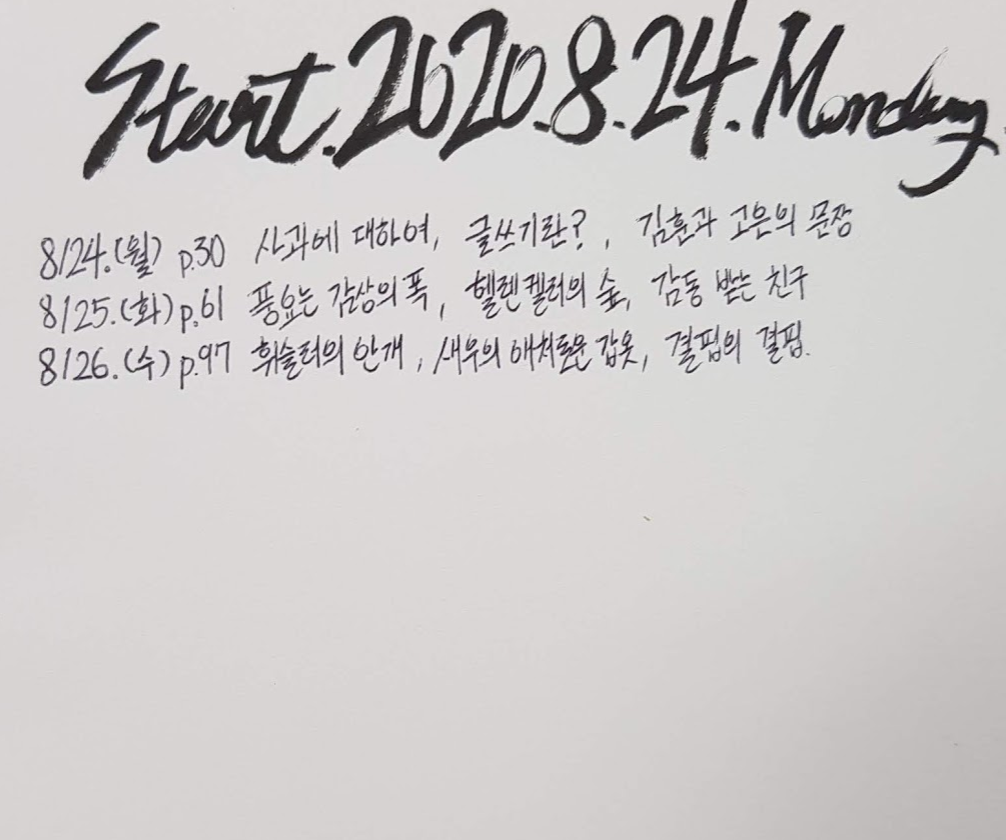 Start. 2020. 8. 24. Monday
8/24.(월) p.30 사과에 대하여, 글쓰기란?, 김훈과 고은의 문장
8/25.(화) p.61 풍요는 감상의 폭, 헬렌켈러의 숲, 감동 받는 친구
8/26.(수) p.97 휘슬러의 안개, 새우의 애처로운 갑옷, 결핍의 결핍.